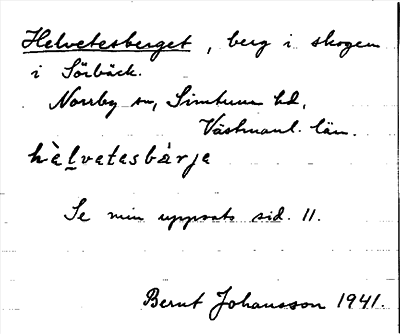 Helvetesberget, berg i skogen
i Sörbäck.
Norrby sn, Simtuna hd,
Västmanl. län.
hè̀lvetesbàrje
Se min uppsats sid. 11.
Bernt Johansson 1941.